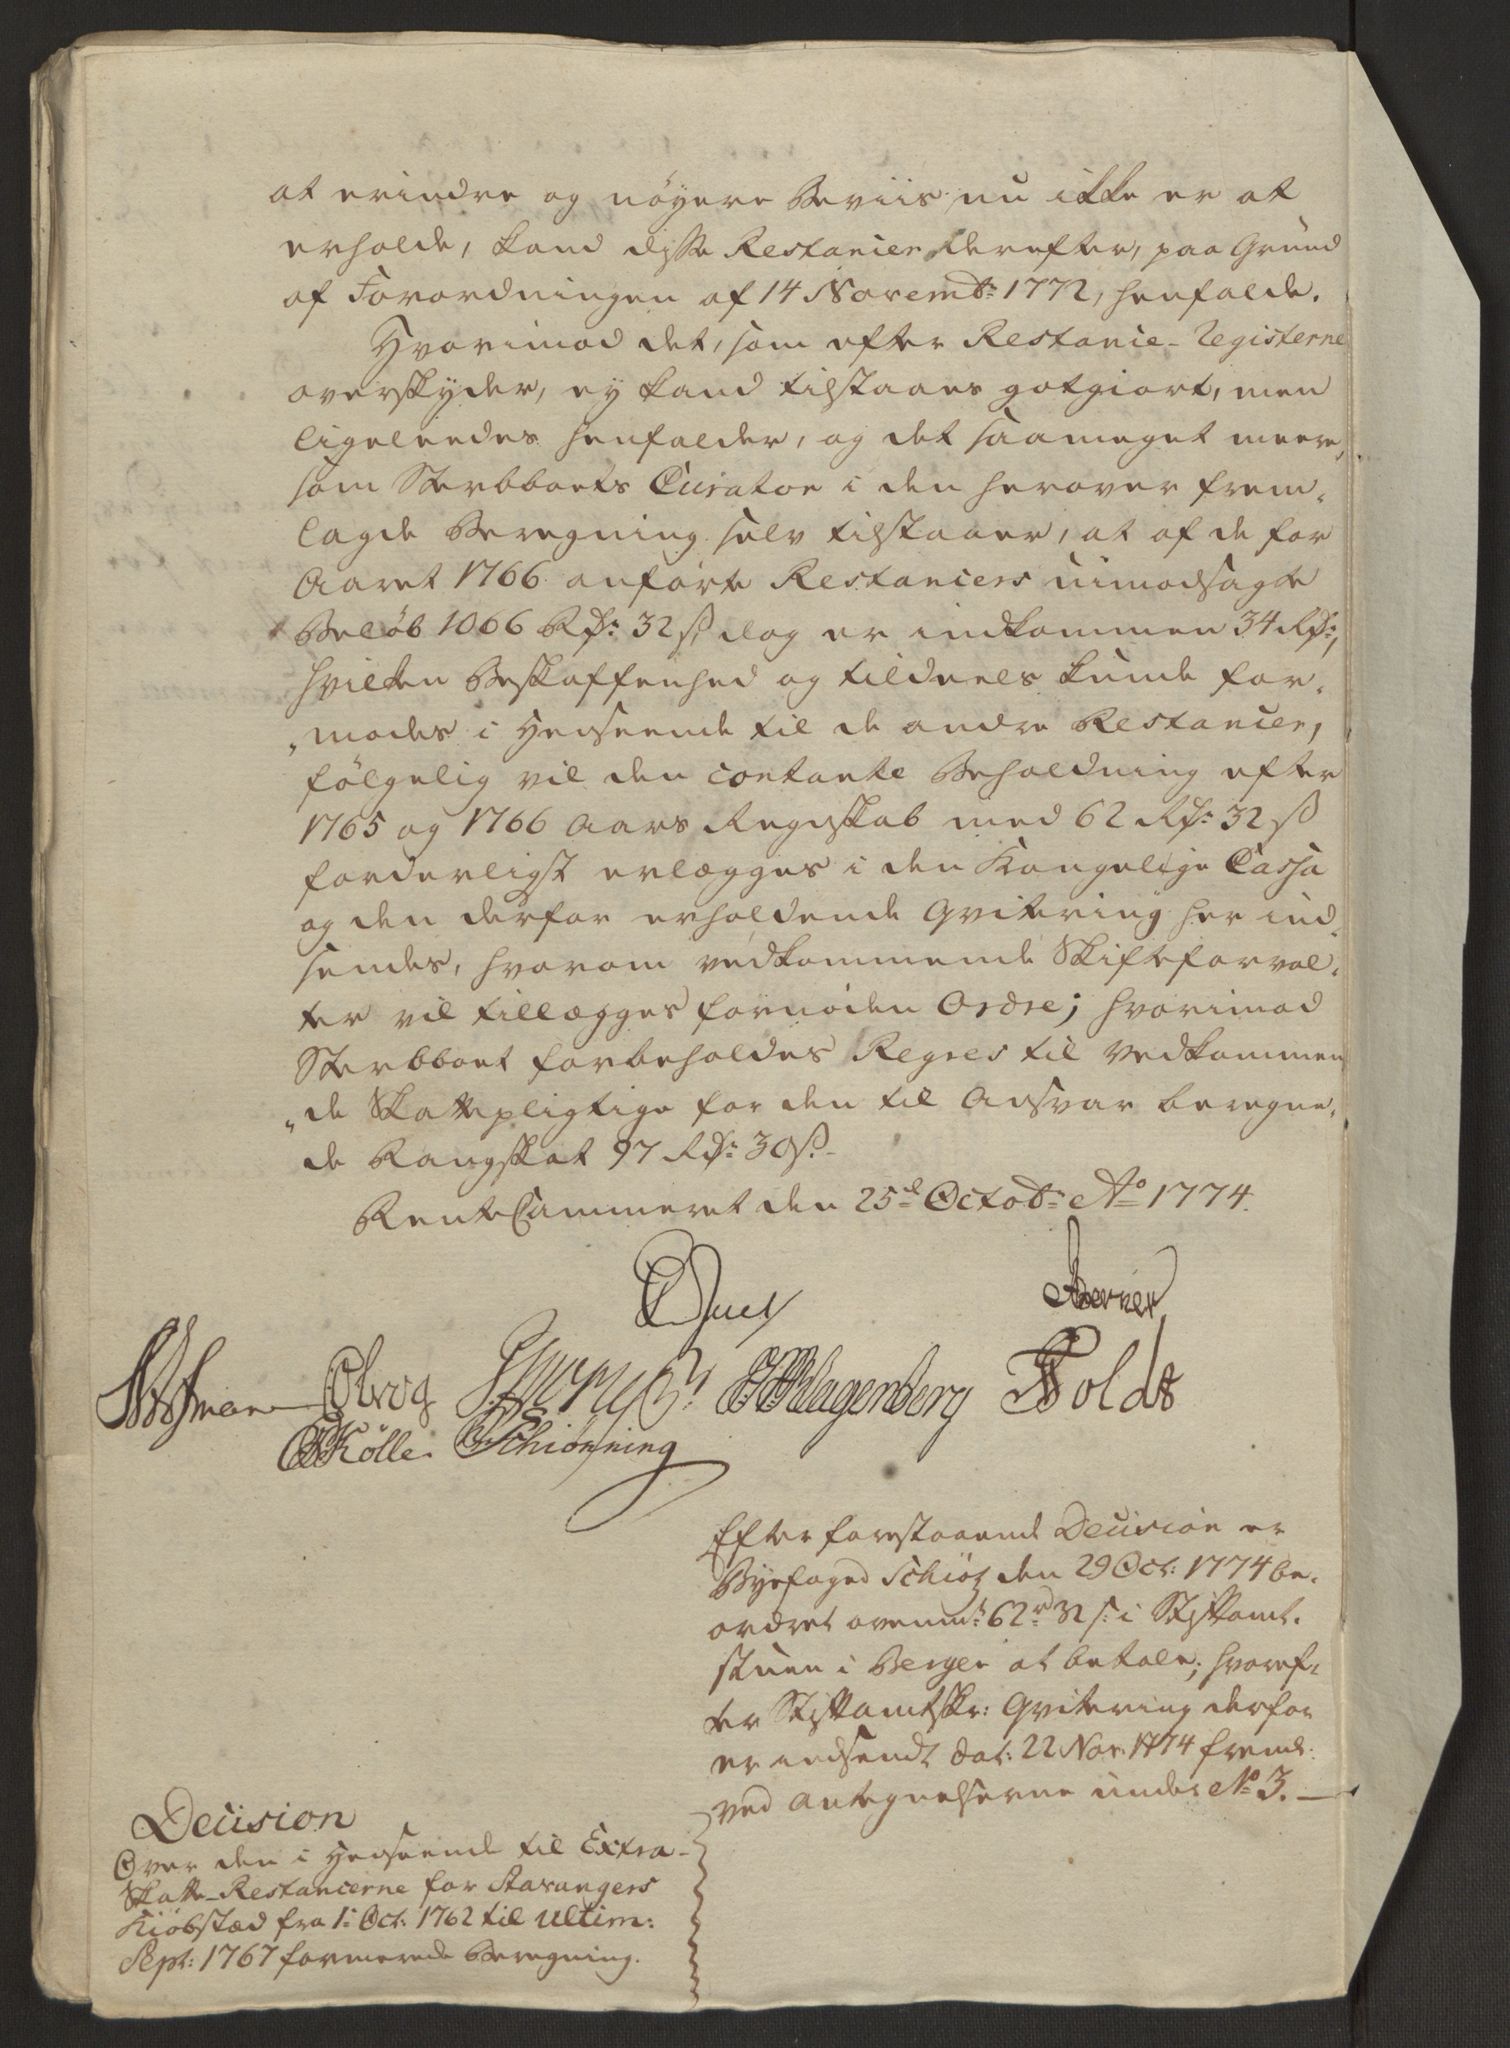 at erindre og nöyere Beviis nu ikke er at
erholde, kand disse Restancier derefter, paa Grund
af Forordningen af 14 Novembr: 1772, henfalde.
Hvorimod det, som efter Restance-Registerne
overskyder, ey kand tilstaaes gotgiort, men
ligeleedes henfalder, og det saameget meere,
som Sterbboets Curator i den herover frem-
lagde Beregning selv tilstaaer, at af de for
Aaret 1766 anförte Restanciers uimodsagte
Belöb 1066 Rdr: 32 s, dog er indkommen 34 Rdr:,
hvilken Beskaffenhed og tildeels kunde for-
modes i Henseende til de andre Restancier,
fölgelig vil den contante Beholdning efter
1765 og 1766 Aars Regnskab med 62 Rdr: 32 s
forderligst erlægges i den Kongelige Cassa
og den derfor erholdende Qvitering her ind-
sendes, hvorom vedkommende Skifteforval-
ter vil tillægges fornöden Ordre; hvorimod
Sterbboet forbeholdes Regres til Vedkommen
de Skattepligtige for den til Ansvar beregne-
de Rangskat 97 Rdr: 30 s.
RenteCammeret den 25d Octobr: Ao 1774.
Berner
Kölle. Schiönning
Efter forestaaende Decision er
Byefoged Schiöt den 29 Oct: 1774 be-
ordret ovenm: 62 rd 32 s: i Stiftamt-
stuen i Bergen at betale; hvoref-
ter Stiftamtskr: Qvitering derfor
er indsendt dat: 22 Nov: 1774 freml:
ved Antegnelserne under No 3.
Decision
Over den i Henseende til Extra-
Skatte-Restancerne for Stavangers
Kiöbstæd fra 1: Oct: 1762 til ultim:
Sept: 1767 formerede Beregning.